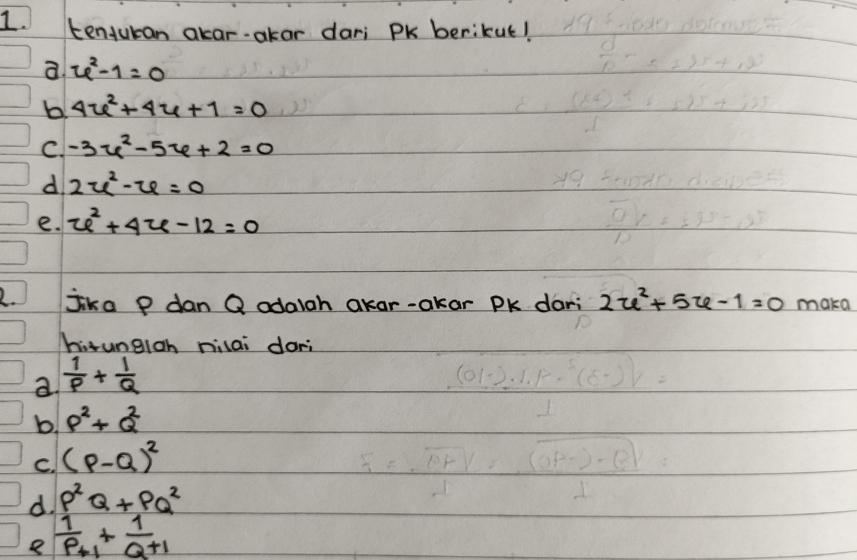 1. tentukan akar-akar dari PK berikut!
a. x²-1=0
b. 4x²+4x+1=0
c. -3x²-5x+2=0
d. 2x²-x=0
e. x²+4x-12=0
2. Jika P dan Q adalah akar-akar PK dari 2x²+5x-1=0 maka
hitunglah nilai dari
a. 1/P + 1/Q
b. P²+Q²
c. (P-Q)²
d. P²Q+PQ²
e. 1/P+1 + 1/Q+1